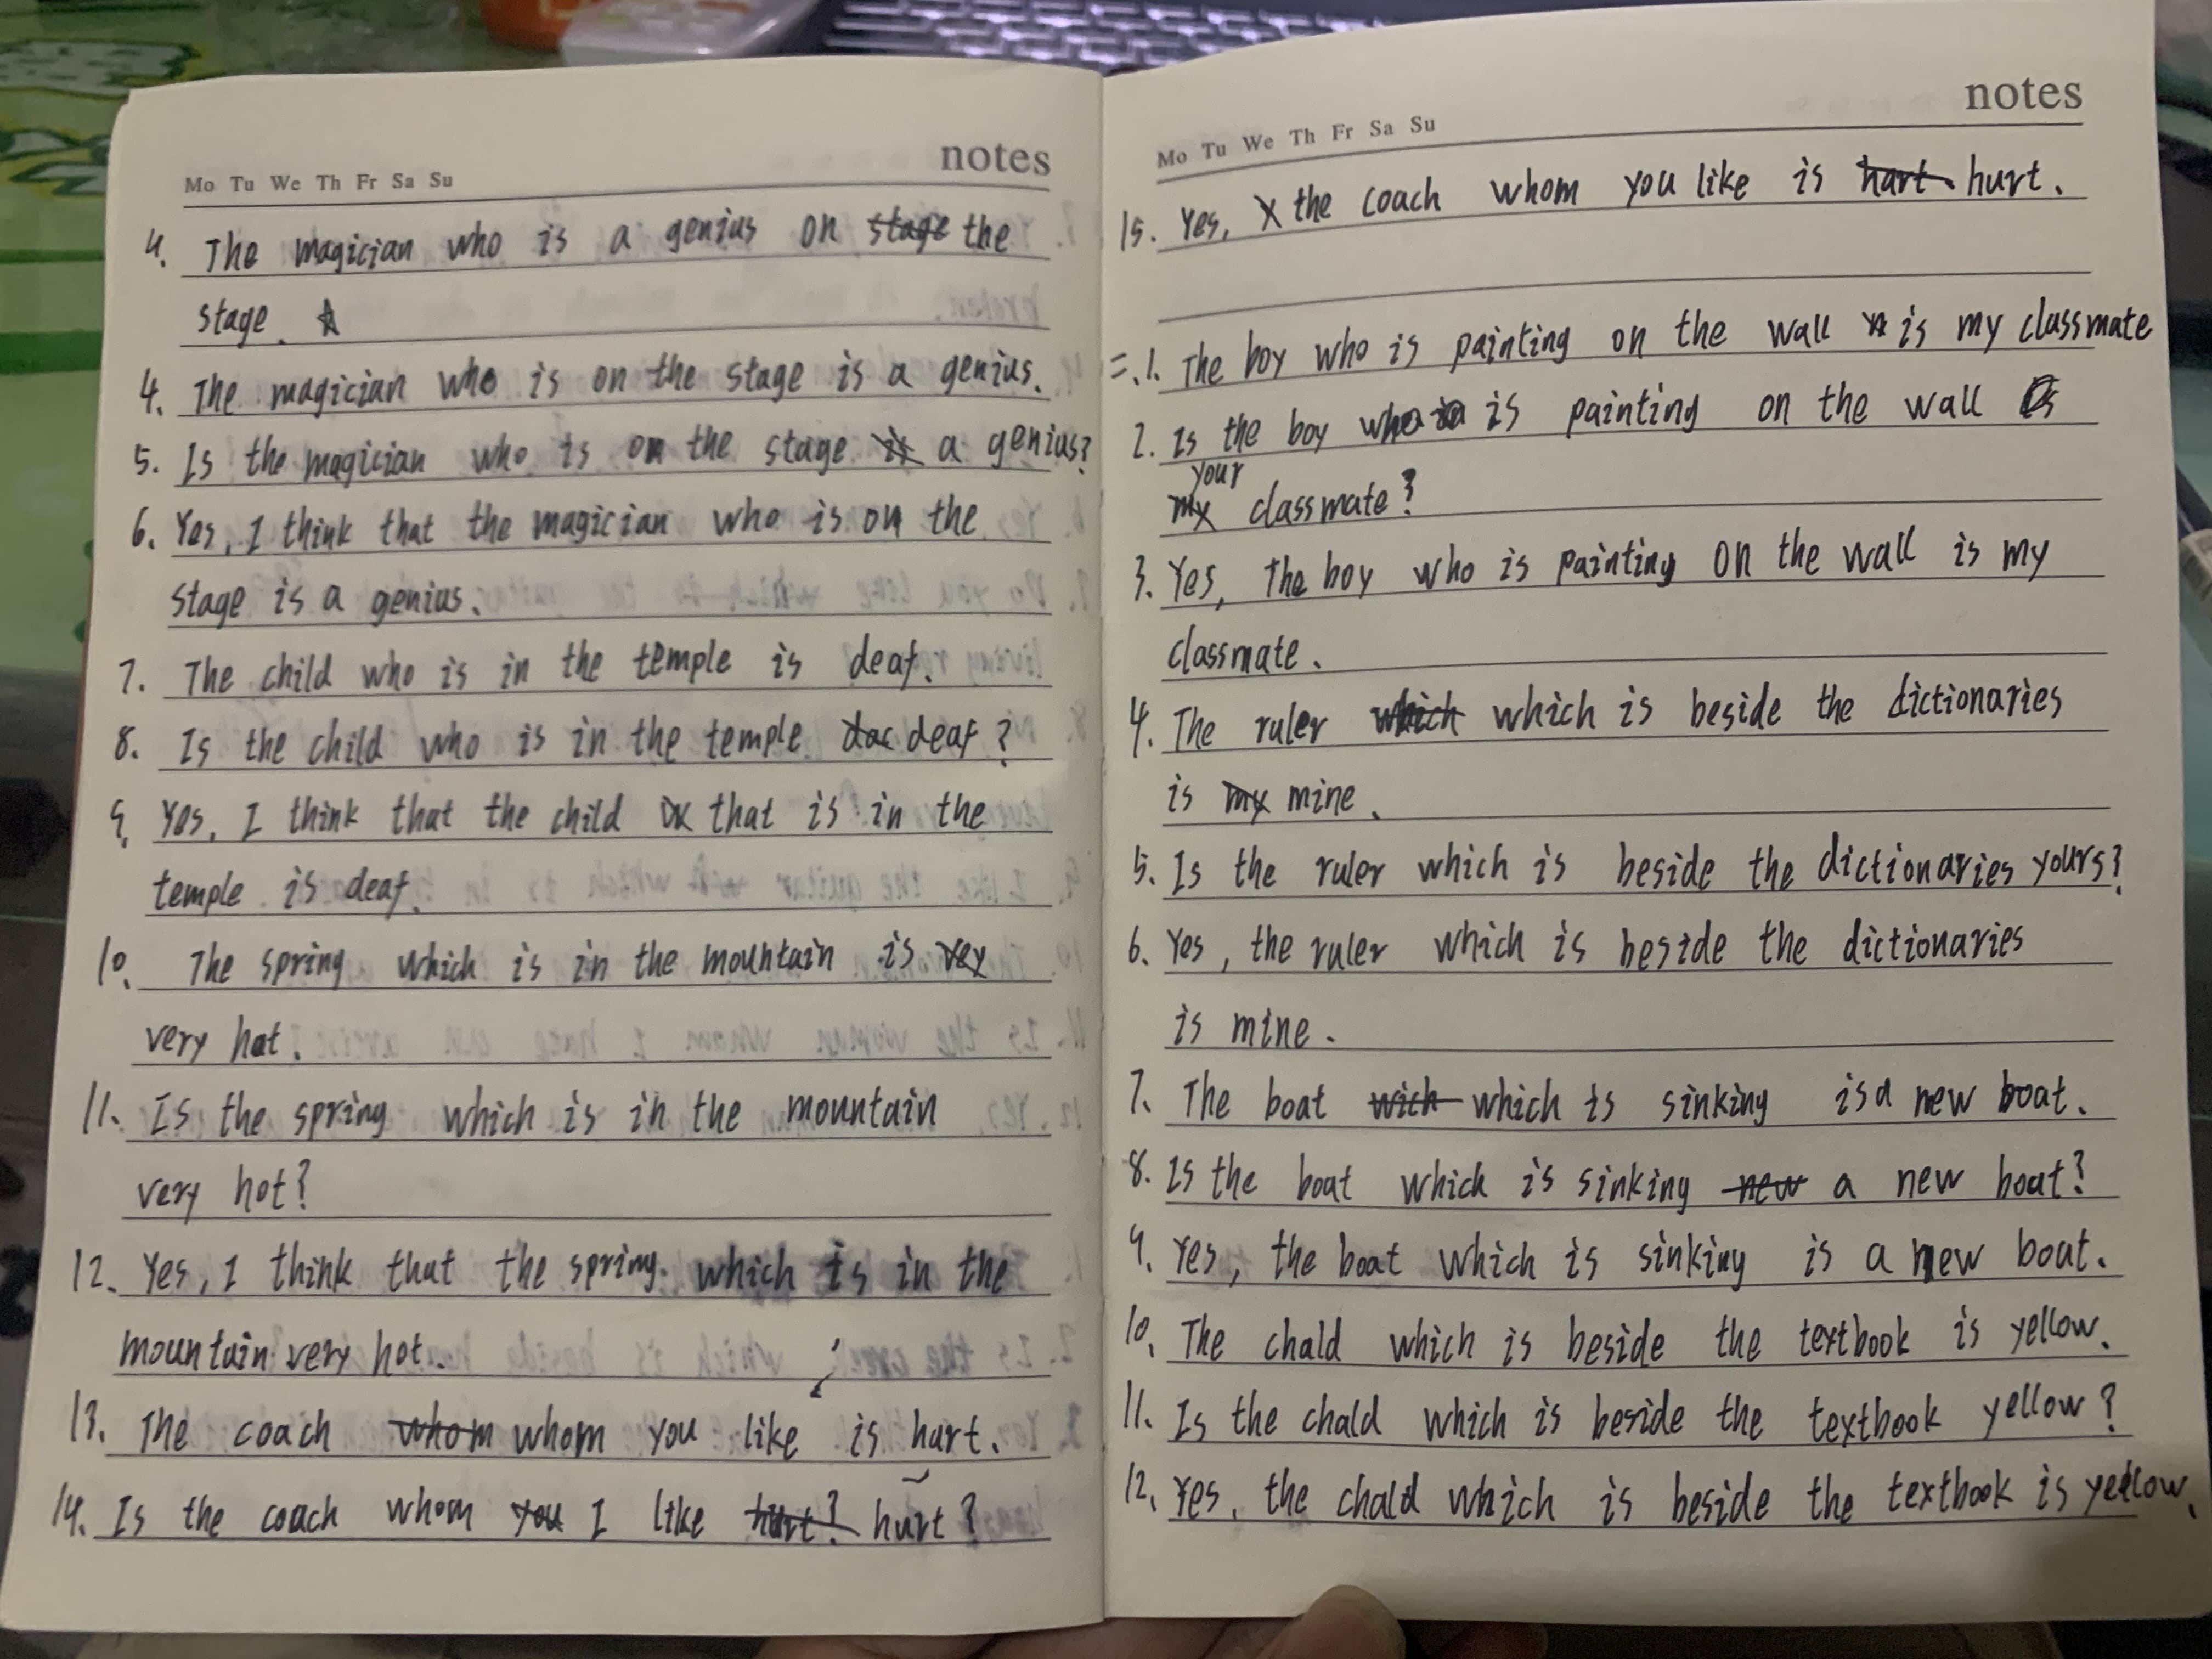 notes
Mo Tu We Th Fr Sa Su
4. The magician who is a genius on stage the
stage.
4. The magician who is on the stage is a genius.
5. Is the magician who is on the stage is a genius?
6. Yes, I think that the magician who is on the
stage is a genius.
7. The child who is in the temple is deaf.
8. Is the child who is in the temple dac deaf?
9. Yes, I think that the child that is in the
temple is deaf.
10. The spring which is in the mountain is vey
very hot.
11. Is the spring which is in the mountain
very hot?
12. Yes, I think that the spring. which is in the
mountain very hot.
13. The coach whom whom you like is hurt.
14. Is the coach whom you I like hurt? hurt?
notes
Mo Tu We Th Fr Sa Su
15. Yes, the coach whom you like is hart. hurt.
=.1. The boy who is painting on the wall is my classmate
2. Is the boy who is painting on the wall
your
my classmate?
3. Yes, The boy who is painting on the wall is my
classmate.
4. The ruler which which is beside the dictionaries
is my mine.
5. Is the ruler which is beside the dictionaries yours?
6. Yes, the ruler which is beside the dictionaries
is mine.
7. The boat wich which is sinking is a new boat.
8. Is the boat which is sinking new a new boat?
9. Yes, the boat which is sinking is a new boat.
10. The chald which is beside the textbook is yellow.
11. Is the chald which is beside the textbook yellow?
12. Yes, the chald which is beside the textbook is yellow.